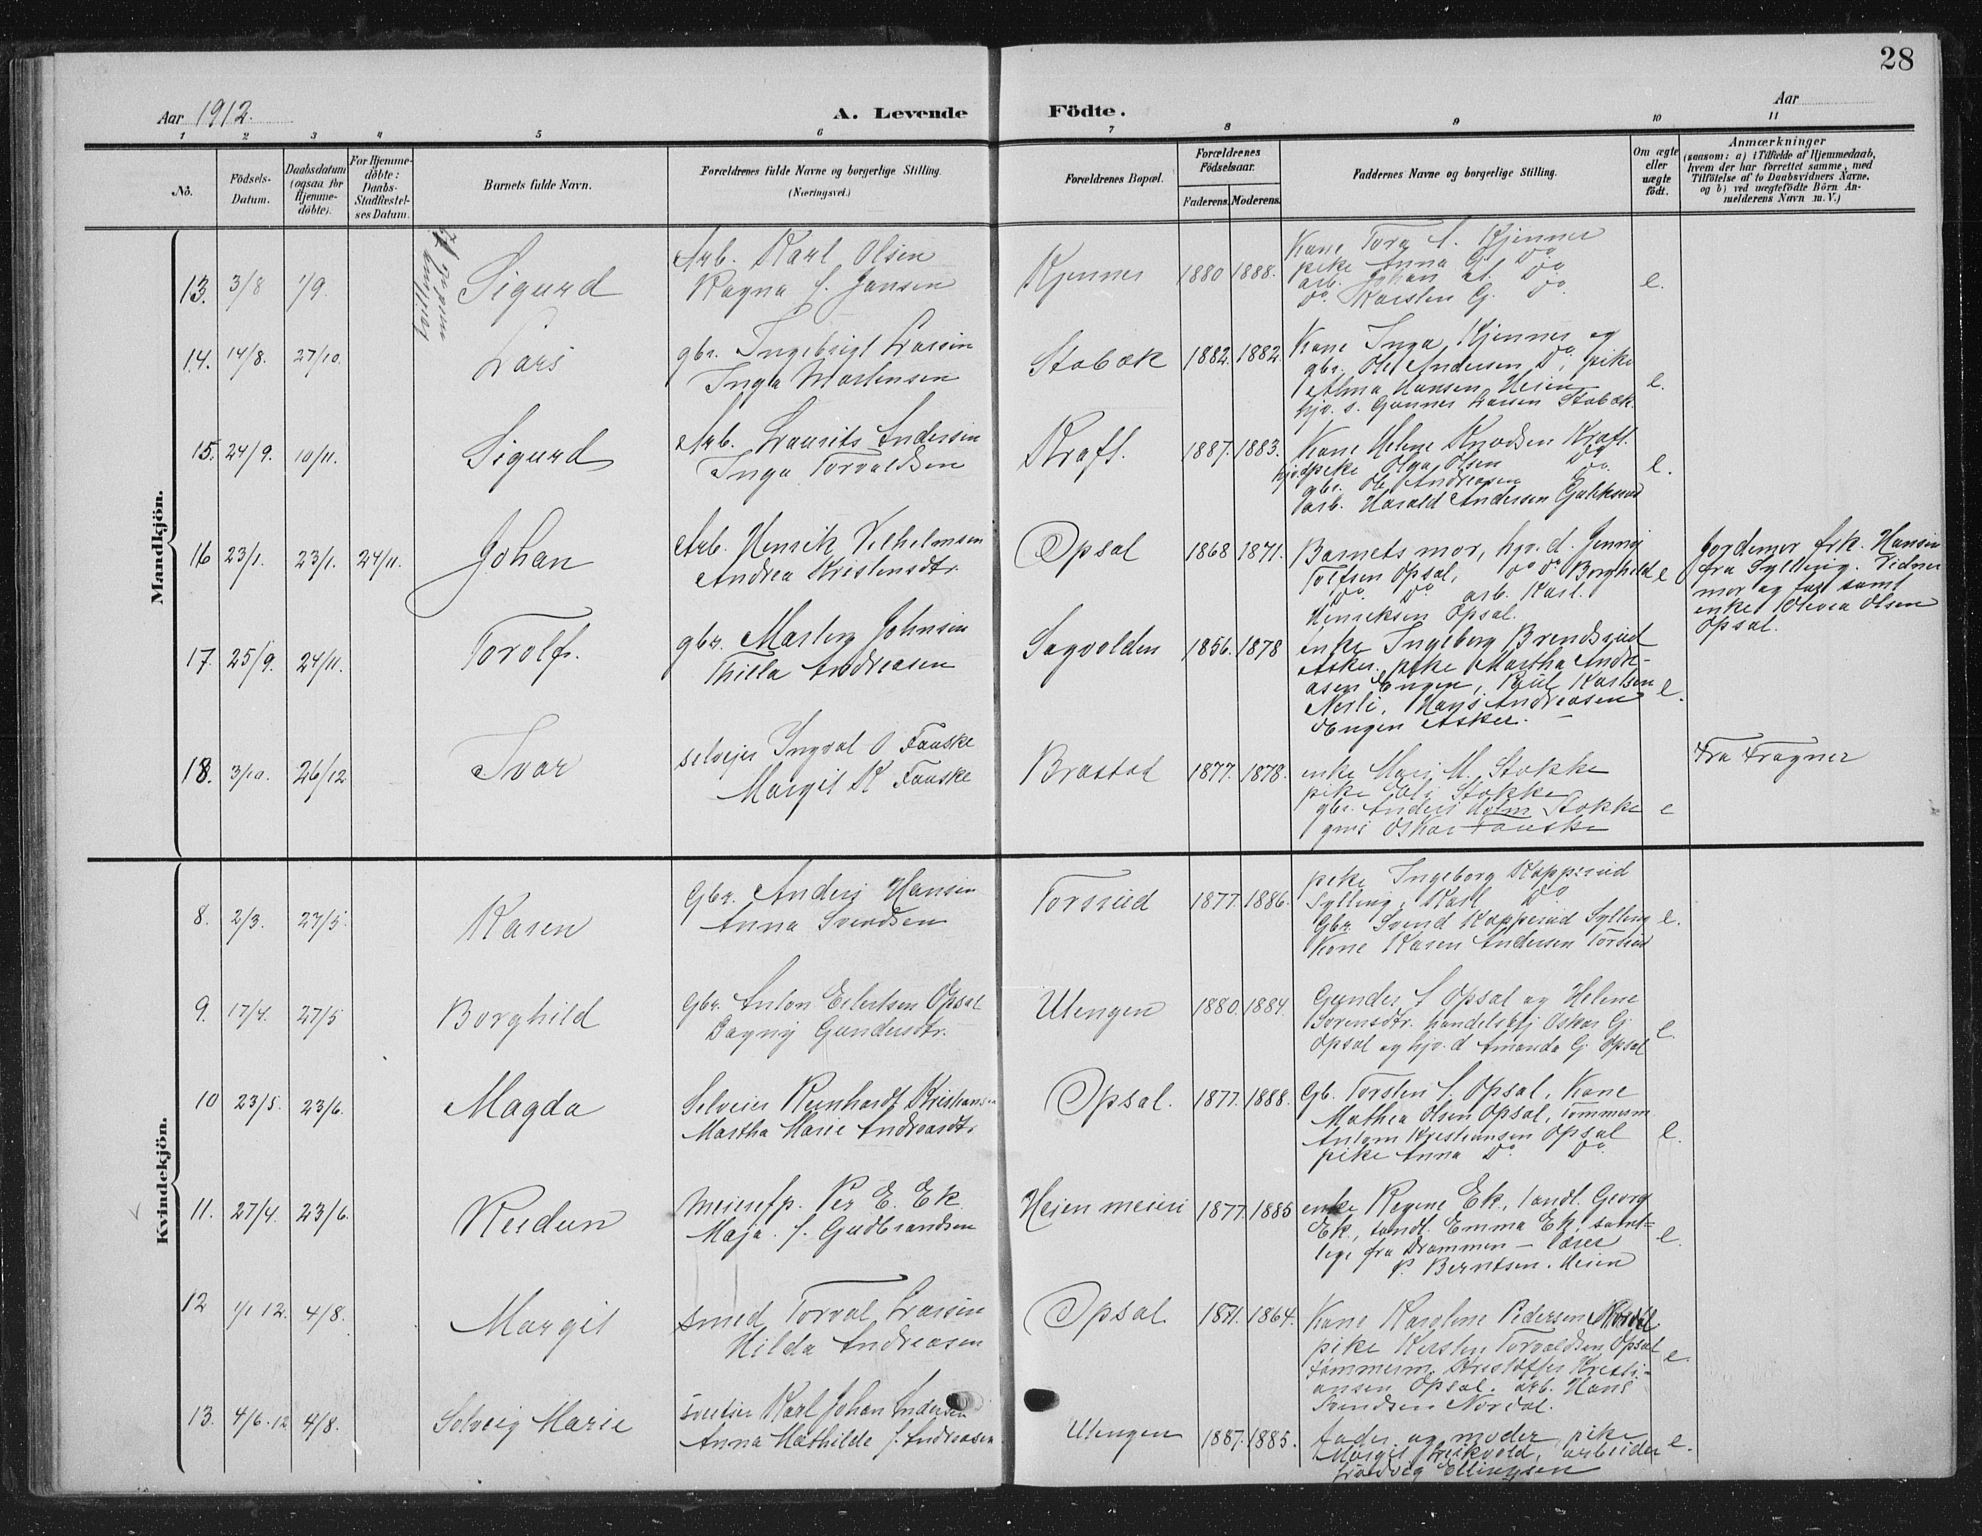 28
Aar 1912.
A. Levende Födte.
Aar
1 2 3 4 5 6 7 8 9 10 11
No.
Födsels-
Datum.
Daabsdatum
(ogsaa for
Hjemme-
döbte).
For Hjemme-
döbte:
Daabs-
Stadfæstel-
ses Datum.
Barnets fulde Navn.
Forældrenes fulde Navne og borgerlige Stilling.
(Næringsvei.)
Forældrenes Bopæl.
Forældrenes
Födselsaar.
Faderens.
Moderens.
Faddernes Navne og borgerlige Stilling.
Om ægte
eller
uægte
födt.
Anmærkninger
(saasom: a) i Tilfælde af Hjemmedaab,
hvem der har forrettet samme, med
Tilföielse af to Daabsvidners Navne,
og b) ved uægtefödte Börn An-
melderens Navn m. V.)
Mandkjön.
13. 3/8 1/9 Sigurd
Arb. Karl Olsen
Ragna f. Jansen
Kjenner 1880 1888.
Kone Tora A. Kjenner
pike Anna G. Do
arb. Johan A. Do
Do Karsten G. Do
e.
14. 14/8. 27/10. Lars
gbr. Ingebrigt Larsen
Inga Martensen
Stabæk 1882. 1882.
Kone Inga Kjenner og
gbr. Ole Andersen Do, pike
Alma Hansen Heien
hjv. s. Gunner Larsen Stabæk.
e.
15. 24/9. 10/11. Sigurd
Arb. Laurits Andersen
Inga Torvaldsen
Kraft. 1887. 1883.
Kone Helene Knudsen Kraft.
hjv. pike Olga Olsen Do
gbr. Ole Andreasen Do.
arb. Harald Andersen
e.
16 23/1. 23/1. 24/11. Johan
Arb. Henrik Vilhelmsen
Andrea Kristensdtr.
Opsal 1868 1871.
Barnets mor, hjv. d. Jenny
Toltsen Opsal, Do Do Borghild
Do Do arb. Karl
Henriksen Opsal.
e
Jordemor frk. Hansen
fra Sylling. Vidner
mor og far samt
enke Olivia Olsen
Opsal.
17. 25/9. 24/11. Torolf.
gbr. Martin Johnsen
Thilla Andreasen
Sagvolden 1856. 1878
enke Ingeborg Brendsrud
Asker. pike Martha Andre-
asen Engen, Karlsen
Nerli, Hans Andreasen
Engen Asker.
e.
18. 3/10. 26/12 Ivar
selvejer Ingval O Fauske
Margit K Fauske
Brastad 1877. 1878.
enke Mari M. Stokke
pike Stokke
gbr. Anders Holm Stokke
Oskar Fauske
e
Fra Fragner
Kvindekjön.
8. 2/3. 27/5. Karen
Gbr. Anders Hansen
Anna Svendsen
Torsrud 1877. 1886.
pike Ingeborg Kopperud
Sylling, Karl Do
Gbr Svend Kopperud Sylling
Kone Karen Andersen Torsrud
e.
9. 17/4. 27/5 Borghild
Gbr. Anton Eilertsen Opsal
Dagny Gundersdtr.
Ulengen 1880. 1884.
Gunder S Opsal og Helene
Sorensdtr. handelsbtj Oskar G.
Opsal og hjv. d Amanda G. Opsal
e.
10 23/5. 23/6. Magda
Selveier Reinhardt Kristiansen
Martha Marie Andreasdtr.
Opsal. 1877. 1888.
Gb. Torsten S. Opsal. Kone
Mathea Olsen Opsal, tömmerm
Antom Kristiansen Opsal
pike Anna Do Do
e.
11. 27/4. 23/6. Reidun
Meierefp. Per E. Ek.
Maja f. Gudbrandsen
Heien meieri 1877. 1885
enke Regine Ek, tandl. Georg
Ek, tandl. Emma Ek, samt-
lige fra Drammen - lærer
P. Berntsen. Heien
e.
12 1/1 12. 4/8. Margit
smed Torval Larsen
Hilda Andreasen
Opsal 1871. 1864.
Kone Karoline Pedersen Nordal
pike Kirsten Torvaldsen Opsal
tömmerm. Kristoffer Kristi-
ansen Opsal. arb. Hans
Svendsen Nordal.
e.
13. 4/6. 12 4/8. Solveig Marie
Karl Johan Andersen
Anna Mathilde f. Andreasen
Ulengen 1887. 1885.
fader og moder, pike
Margit, arbeider
Ludvig Ellingsen
e.